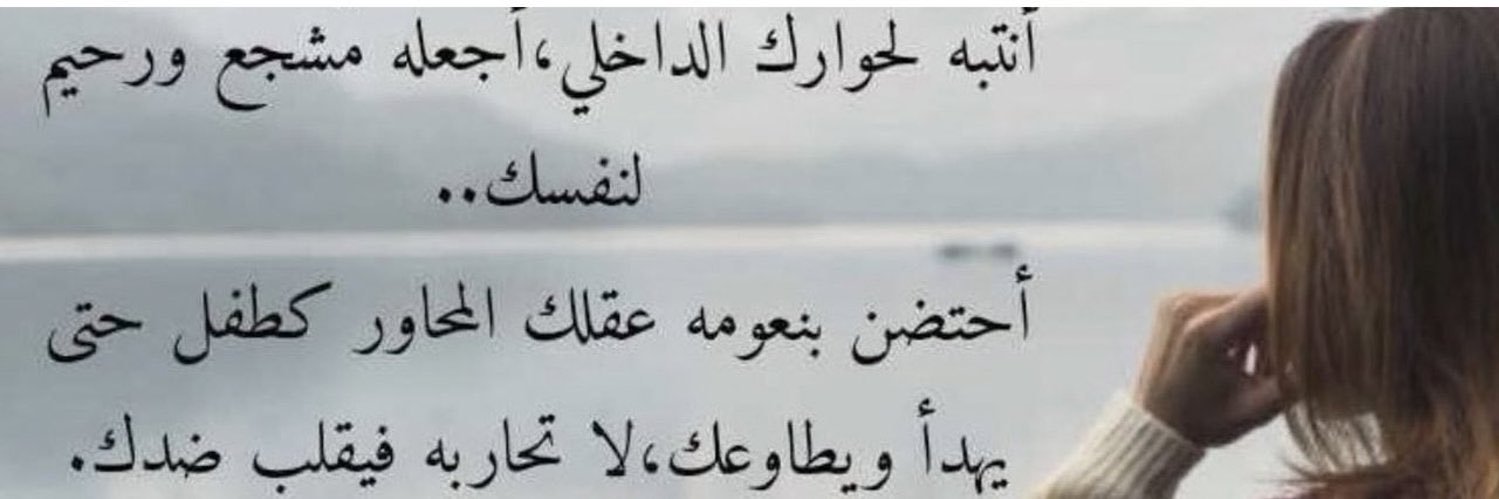 أنتبه لحوارك الداخلي،أجعله مشجع ورحيم
لنفسك..
أحتضن بنعومه عقلك المحاور كطفل حتى
يهدأ ويطاوعك،لا تحاربه فيقلب ضدك.